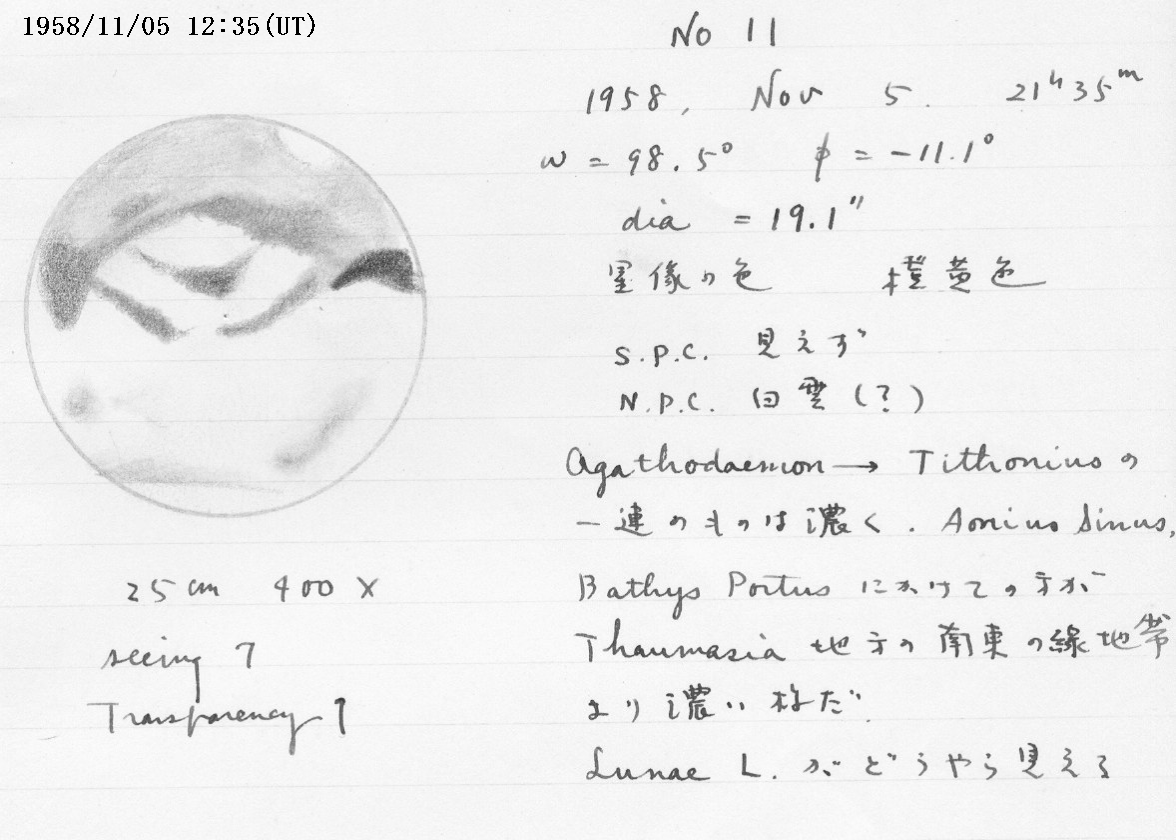 1958/11/05 12:35(UT)
No 11
1958, Nov 5. 21h35m
ω = 98.5° φ = -11.1°
dia = 19.1"
星像の色 橙黄色
S.P.C. 見えず
N.P.C. 白雲(?)
Agathodaemon → Tithoniusの
一連のものは濃く. Aonius Sinus,
Bathys Portusにかけての方が
Thaumasia 地方の南東の緑地帯
より濃い様だ.
Lunae L. がどうやら見える
25cm 400×
seeing 7
Transparency 1